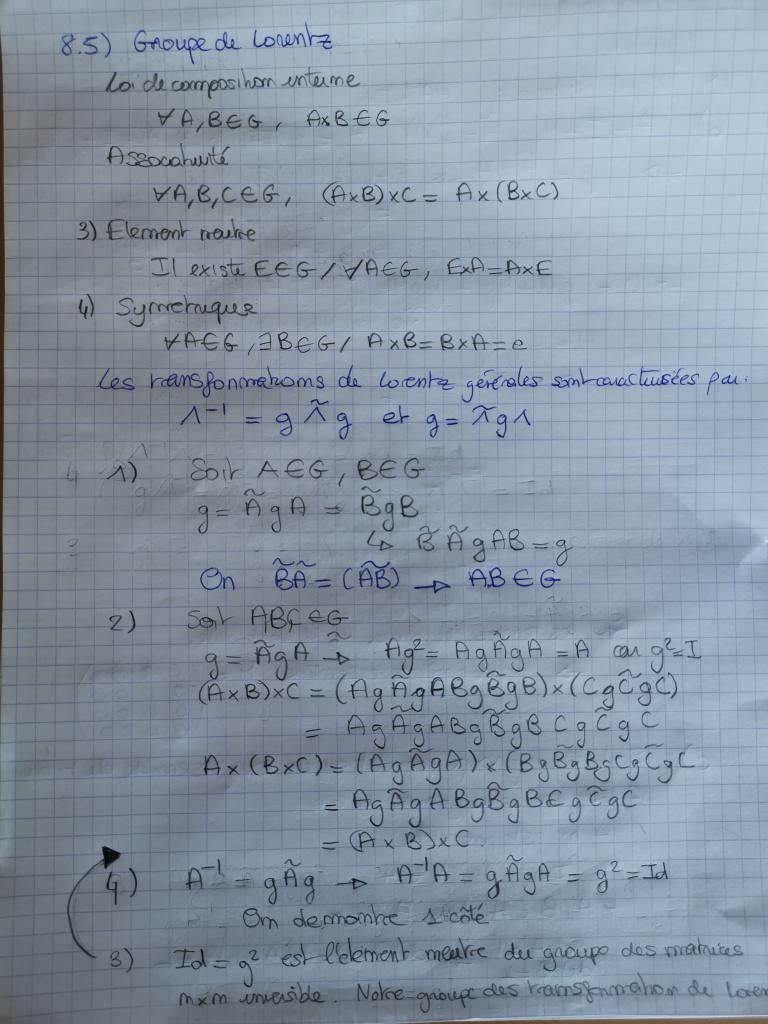 8.5) Groupe de Lorentz
Loi de composition interne
∀A,B∈G, A×B∈G
Associativité
∀A,B,C∈G, (A×B)×C = A×(B×C)
3) Element neutre
Il existe E∈G / ∀A∈G, E×A=A×E
4) Symetrique
∀A∈G, ∃B∈G / A×B=B×A=e
Les transformations de Lorentz générales sont caractérisées par:
Λ⁻¹ = g Λ̃ g et g = Λ̃ g Λ
1) Soit A∈G, B∈G
g = Ã g A = B̃ g B
↳ B̃ Ã g A B = g
On B̃Ã = (ÃB̃) → AB∈G
2) Soit A,B,C∈G
g = Ã g A → Ag² = AgÃgA = A car g²=I
(A×B)×C = (AgÃgABgB̃gB)×(CgC̃gC)
= AgÃgABgB̃gBCgC̃gC
A×(B×C) = (AgÃgA)×(BgB̃gBgCgC̃gC
= AgÃgABgB̃gBCgC̃gC
= (A×B)×C
4) A⁻¹ = gÃg → A⁻¹A = gÃgA = g² = Id
On demontre 1 côté
3) Id = g² est l'element neutre du groupe des matrices
n×n inversible. Notre groupe des transformation de Loren